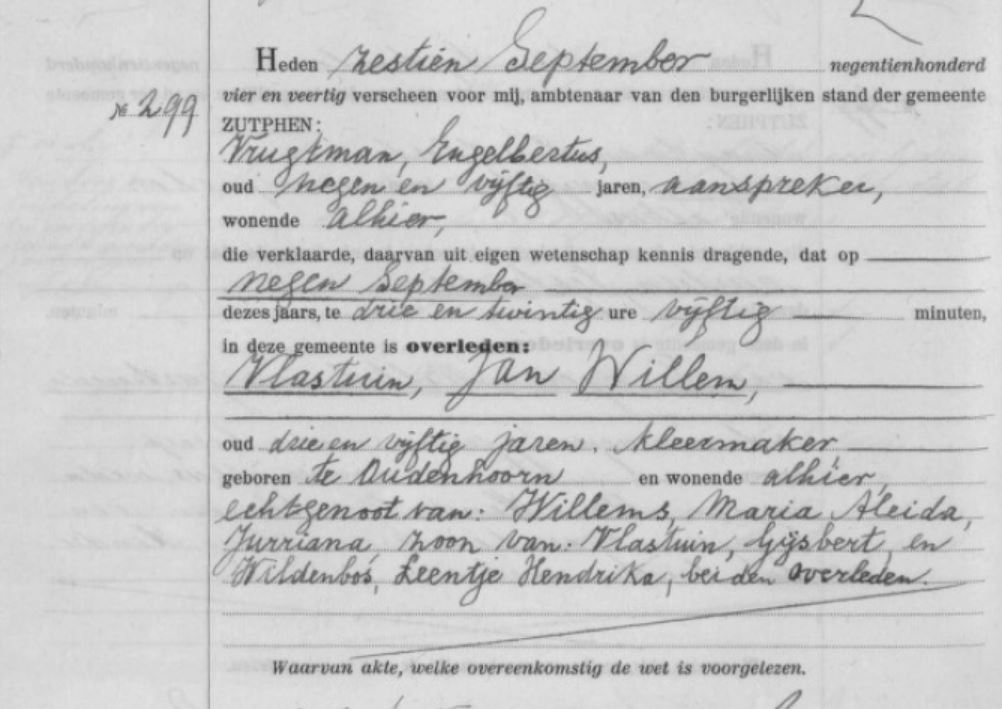 Heden zestien September negentienhonderd
№ 299
vier en veertig verscheen voor mij, ambtenaar van den burgerlijken stand der gemeente
ZUTPHEN:
Vrugtman, Engelbertus,
oud negen en vijftig jaren, aanspreker,
wonende alhier,
die verklaarde, daarvan uit eigen wetenschap kennis dragende, dat op
negen September
dezes jaars, te drie en twintig ure vijftig minuten,
in deze gemeente is overleden:
Vlastuin, Jan Willem,
oud drie en vijftig jaren. kleermaker
geboren te Oudenhoorn en wonende alhier,
echtgenoot van: Willems, Maria Aleida,
Jurriana, zoon van: Vlastuin, Gijsbert, en
Wildenbos, Leentje Hendrika, beiden overleden.
Waarvan akte, welke overeenkomstig de wet is voorgelezen.